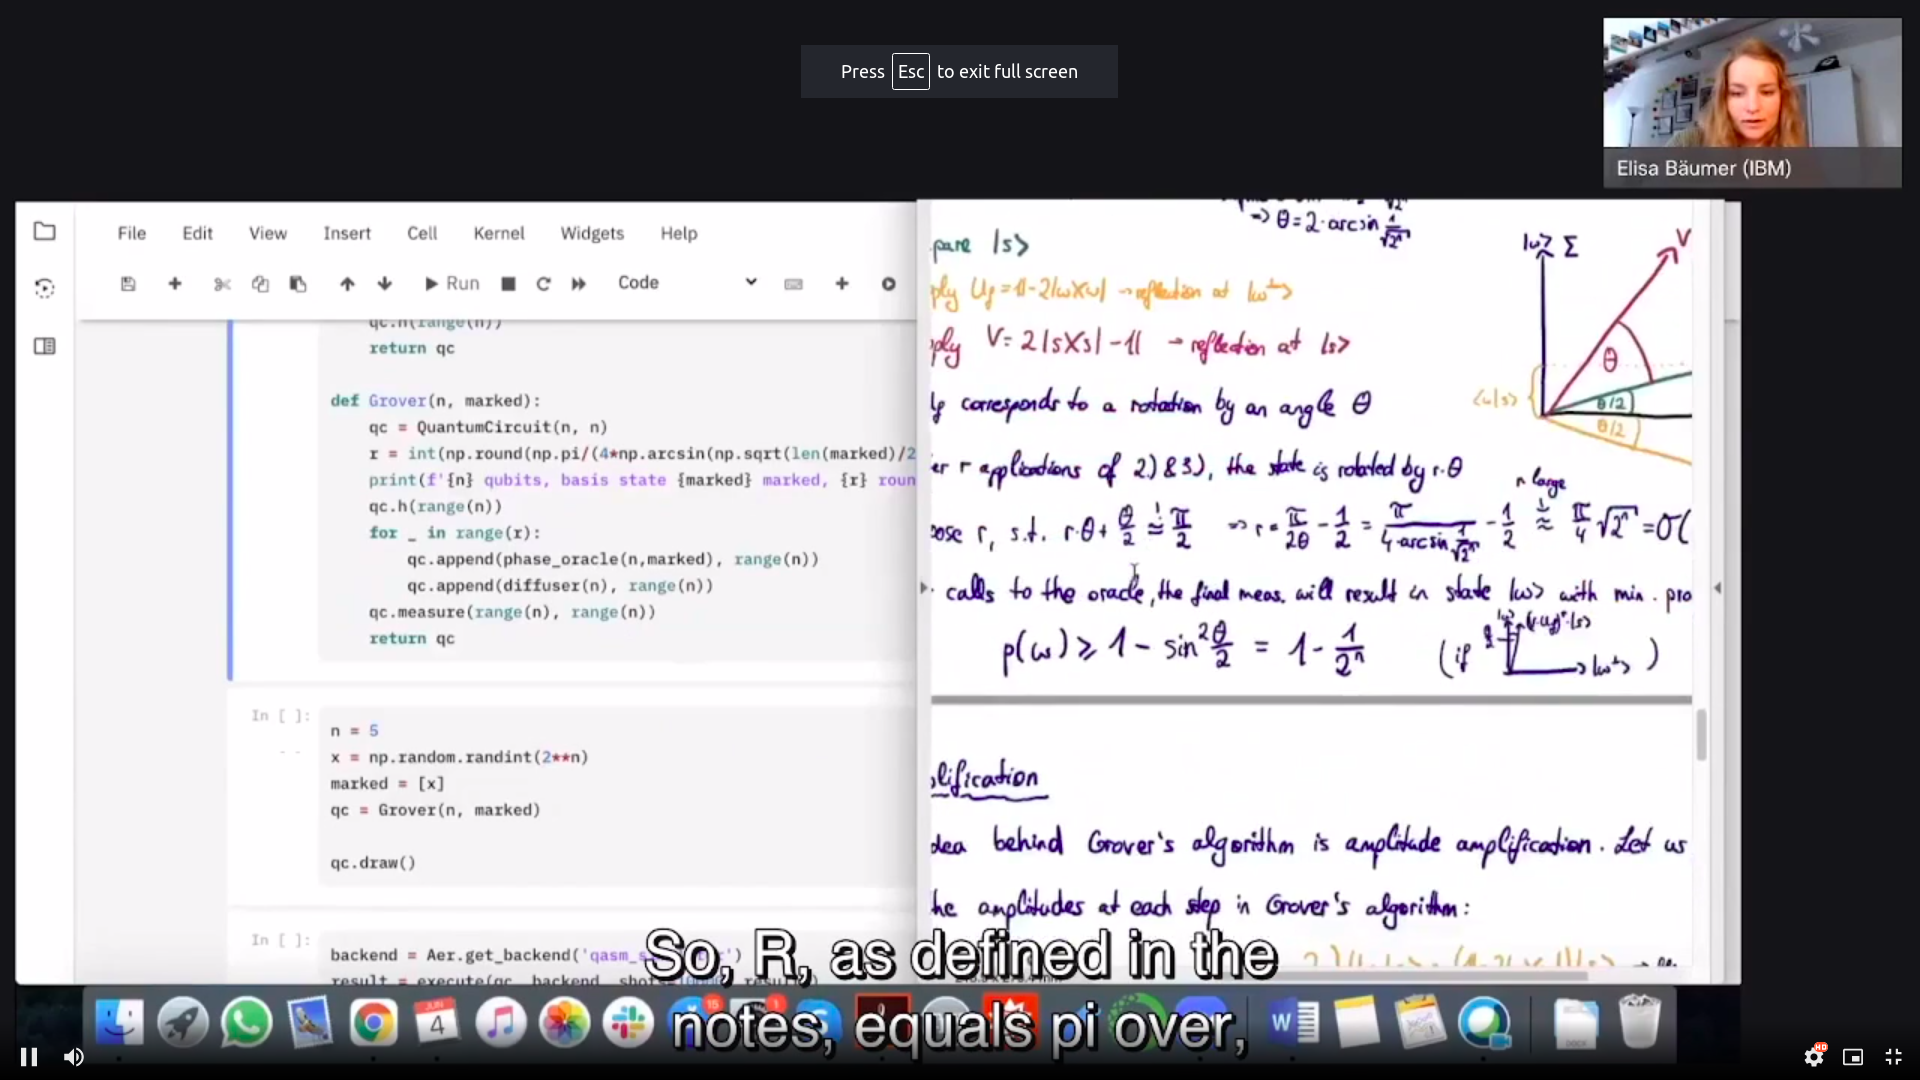 Press Esc to exit full screen
Elisa Bäumer (IBM)
File Edit View Insert Cell Kernel Widgets Help
Run Code
qc.h(range(n))
return qc
def Grover(n, marked):
qc = QuantumCircuit(n, n)
r = int(np.round(np.pi/(4*np.arcsin(np.sqrt(len(marked)/2
print(f'{n} qubits, basis state {marked} marked, {r} roun
qc.h(range(n))
for _ in range(r):
qc.append(phase_oracle(n,marked), range(n))
qc.append(diffuser(n), range(n))
qc.measure(range(n), range(n))
return qc
In [ ]:
n = 5
x = np.random.randint(2**n)
marked = [x]
qc = Grover(n, marked)
qc.draw()
In [ ]:
backend = Aer.get_backend('qasm_s
result = execute(qc, backend, shots
⇒ θ = 2·arcsin 1/√2ⁿ
pare |s>
ply Uf = 1 - 2|ω><ω| → reflection at |ω⊥>
ply V = 2|s><s| - 1 → reflection at |s>
corresponds to a rotation by an angle θ
er r applications of 2) & 3), the state is rotated by r·θ
ose r, s.t. r·θ + θ/2 ≟ π/2 ⇒ r = π/2θ - 1/2 = π/(4·arcsin 1/√2ⁿ) - 1/2 ≈ π/4 √2ⁿ = O(
n large
calls to the oracle, the final meas. will result in state |ω> with min. pro
p(ω) ≥ 1 - sin² θ/2 = 1 - 1/2ⁿ (if |ω⊥> )
|ω> Σ
V
θ
<ω|s>
θ/2
θ/2
lification
dea behind Grover's algorithm is amplitude amplification. Let us
he amplitudes at each step in Grover's algorithm:
So, R, as defined in the
notes, equals pi over,
15
1
JUN
4
W
DOCX
HD